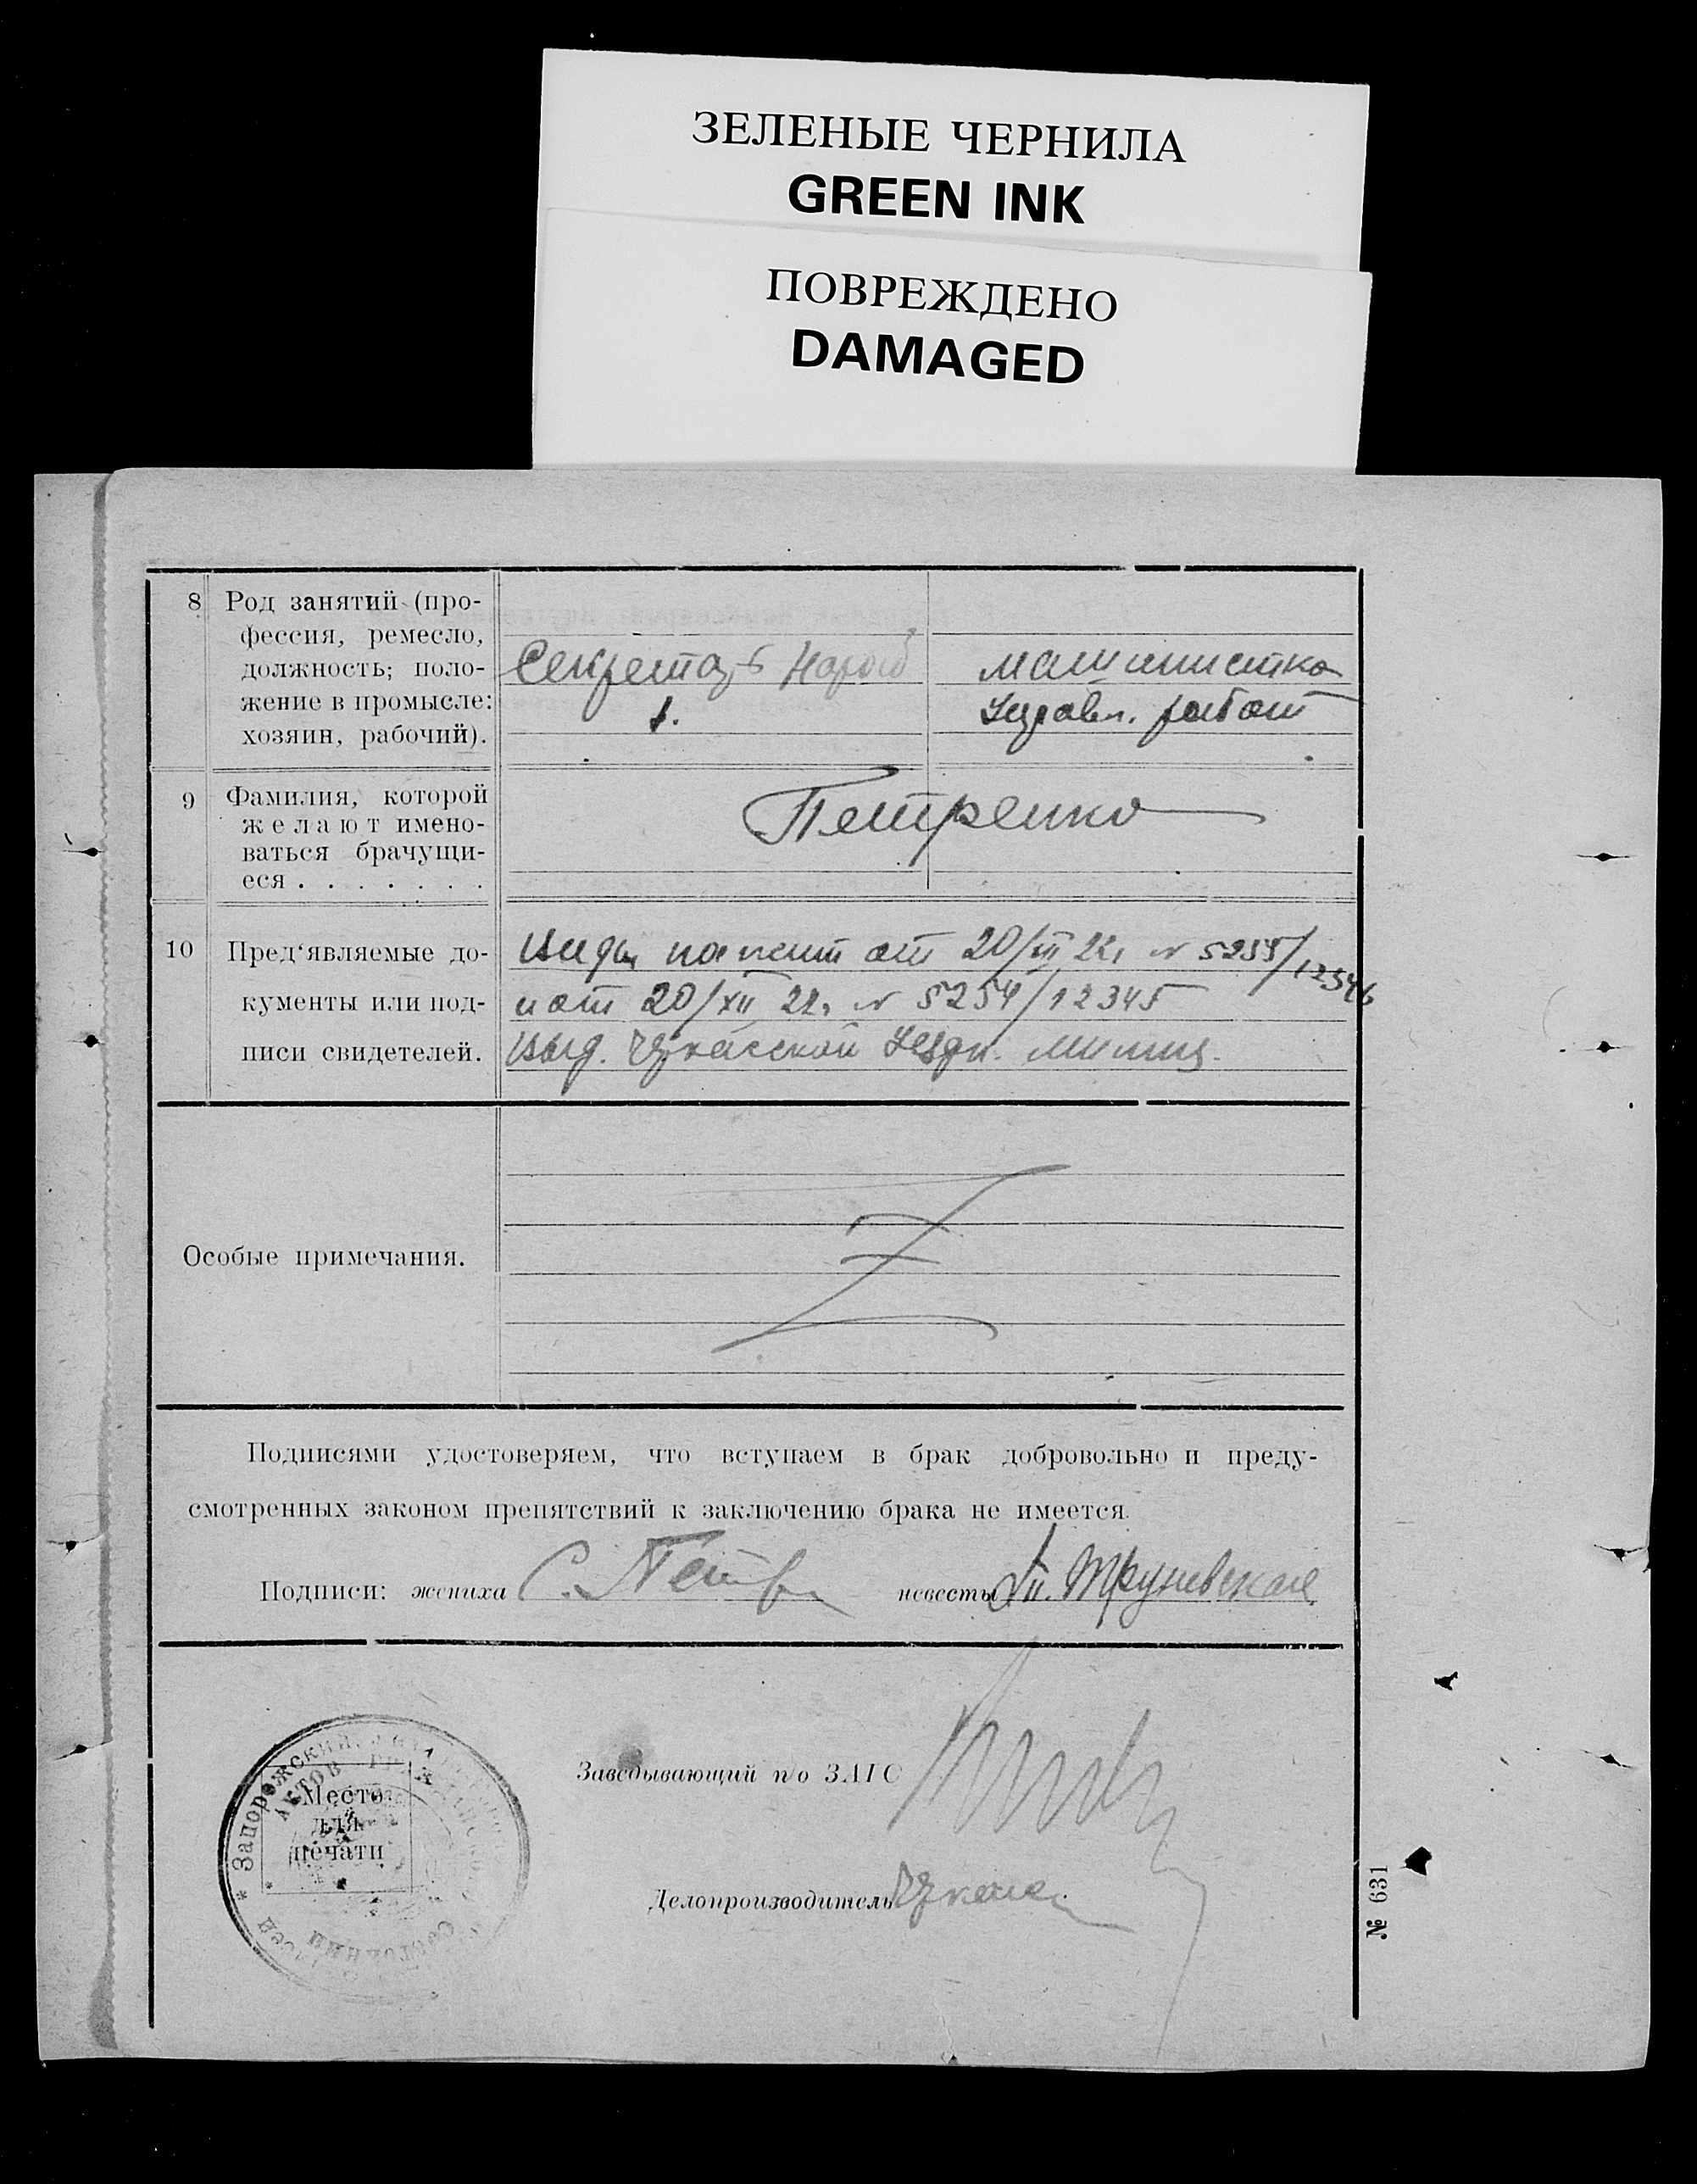 ЗЕЛЕНЫЕ ЧЕРНИЛА
GREEN INK
ПОВРЕЖДЕНО
DAMAGED
8 Род занятий (про-
фессия, ремесло,
должность; поло-
жение в промысле:
хозяин, рабочий).
Секретарь
машинистка
работ
9 Фамилия, которой
желают имено-
ваться брачущи-
еся . . . . . . .
Петренко
10 Пред'являемые до-
кументы или под-
писи свидетелей.
Виды на жит от 20/XII 22 № 5255/12346
и от 20/XII 22 № 5254/12345
выд. Уездн. милиц.
Особые примечания.
Подписями удостоверяем, что вступаем в брак добровольно и преду-
смотренных законом препятствий к заключению брака не имеется.
Подписи: жениха С. невесты
Заведывающий п/о ЗАГС
Место
для
печати
* Запорожский
АКТОВ
СОСТОЯНИЯ
Делопроизводитель
№ 631